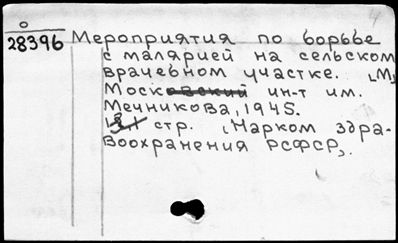 о
28396 Мероприятия по борьбе
с малярией на сельском
врачебном участке. [М]
Московский ин-т им.
Мечникова, 1945.
стр. [Нарком здра-
воохранения РСФСР].